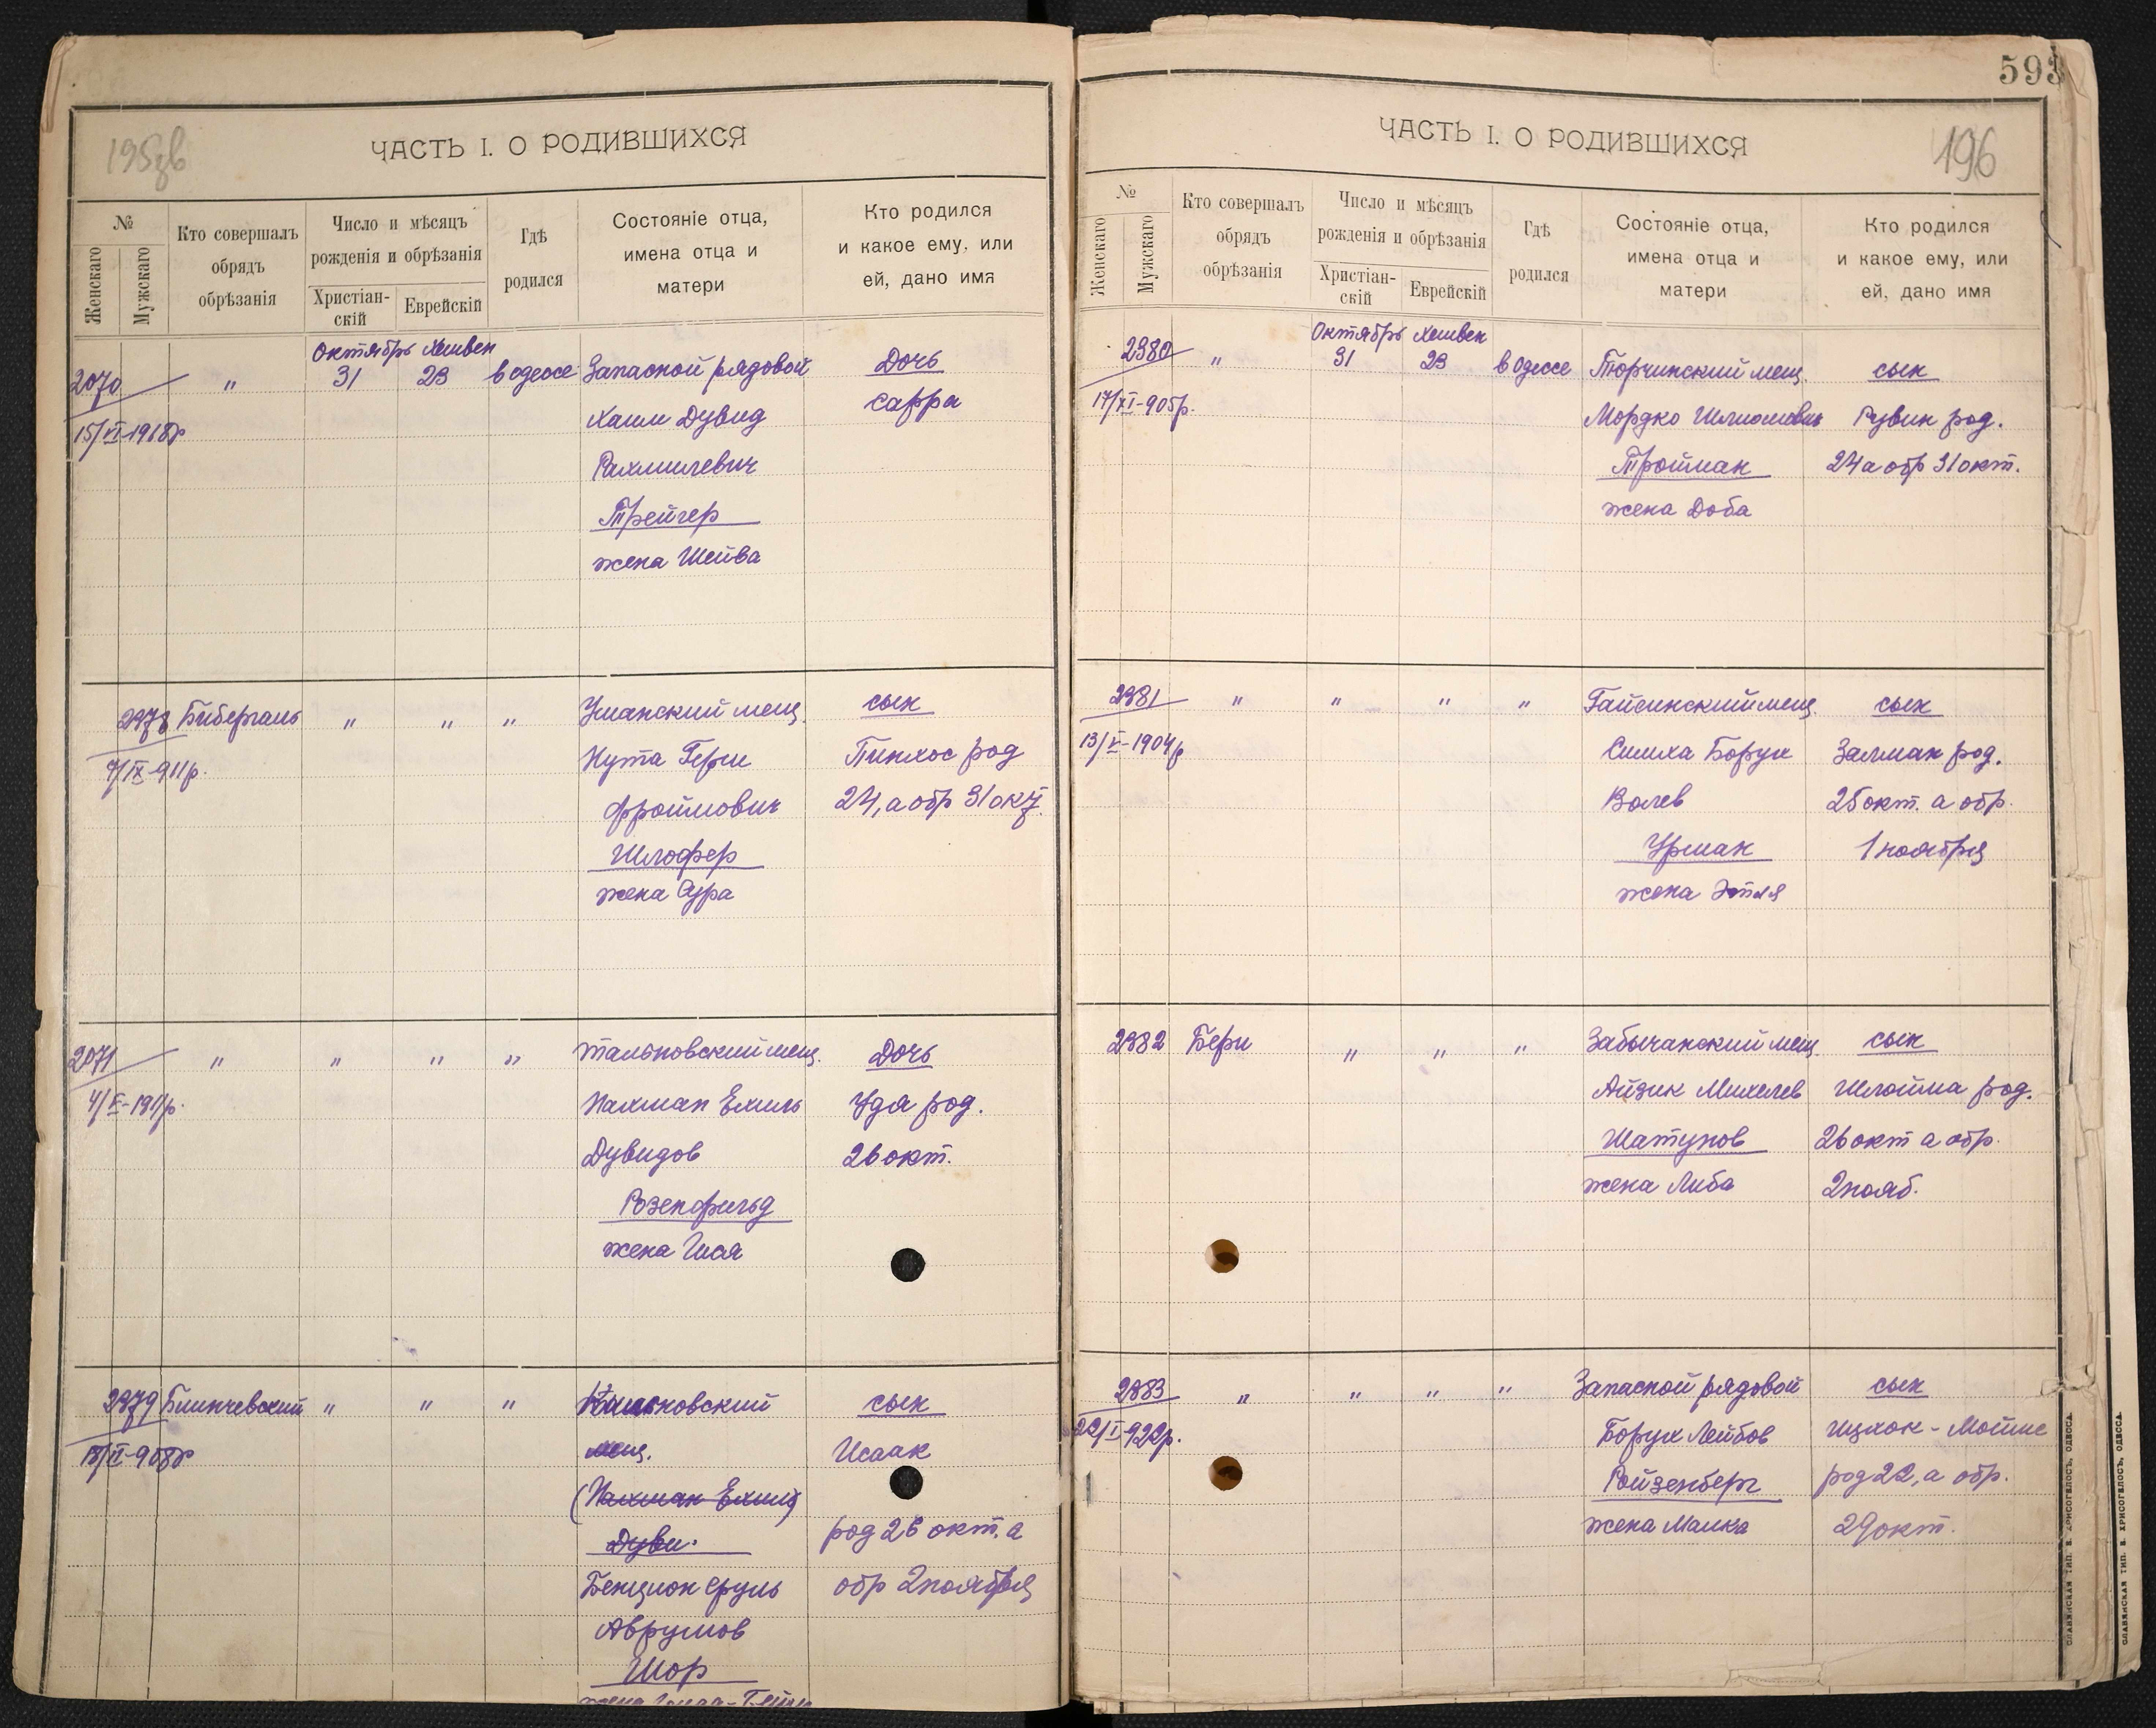 195 зв
ЧАСТЬ I. О РОДИВШИХСЯ
№
Женскаго
Мужскаго
Кто совершалъ
обрядъ
обрѣзанія
Число и мѣсяцъ
рожденія и обрѣзанія
Христіан-
скій
Еврейскій
Гдѣ
родился
Состояніе отца,
имена отца и
матери
Кто родился
и какое ему, или
ей, дано имя
Октябрь Хешвен
2070 " 31 23 в Одессе Запасной рядовой Дочь
15/VI-1918г Хаим Дувид Сарра
Рахмилевич
Трейгер
жена Шейва
2978 Биберган " " " Уманский мещ. сын
9/IX-911р. Нута Герш Пинхос род
Фроймович 24, а обр 31 окт.
Шлофер
жена Сура
2071 " " " " Тальновский мещ. Дочь
Нахман Ехиль Удя род.
Дувидов 26 окт.
Розенфильд
жена Шая
2979 " " " сын
мещ. Исаак
(Нахман Ехил)
Дуви. род 26 окт. а
Бенцион Сруль обр 2 ноября
Аврумов
Шор
593
ЧАСТЬ I. О РОДИВШИХСЯ
196
№
Женскаго
Мужскаго
Кто совершалъ
обрядъ
обрѣзанія
Число и мѣсяцъ
рожденія и обрѣзанія
Христіан-
скій
Еврейскій
Гдѣ
родился
Состояніе отца,
имена отца и
матери
Кто родился
и какое ему, или
ей, дано имя
Октябрь Хешвен
2980 " 31 23 в Одессе мещ. сын
17/XI-905р. Мордко Шлиомович Рувин род.
Тройман 24 а обр 31 окт.
жена Доба
2981 " " " " Гайсинский мещ сын
13/V-1904р Симха Борух Залман род.
Волев 25 окт. а обр.
Урман 1 ноября
жена Этля
2982 Берн " " " мещ. сын
Айзик Михелев Шлойма род.
Шатунов 26 окт а обр.
жена Либа 2 нояб.
2983 " " " " Запасной рядовой сын
22/I-922р. Борух Лейбов Ицхок-Мойше
Ройзенберг род 22, а обр.
жена Малка 29 окт.
СЛАВЯНСКАЯ ТИП. В. ХРИСОГЕЛОСЪ, ОДЕССА.
СЛАВЯНСКАЯ ТИП. В. ХРИСОГЕЛОСЪ, ОДЕССА.